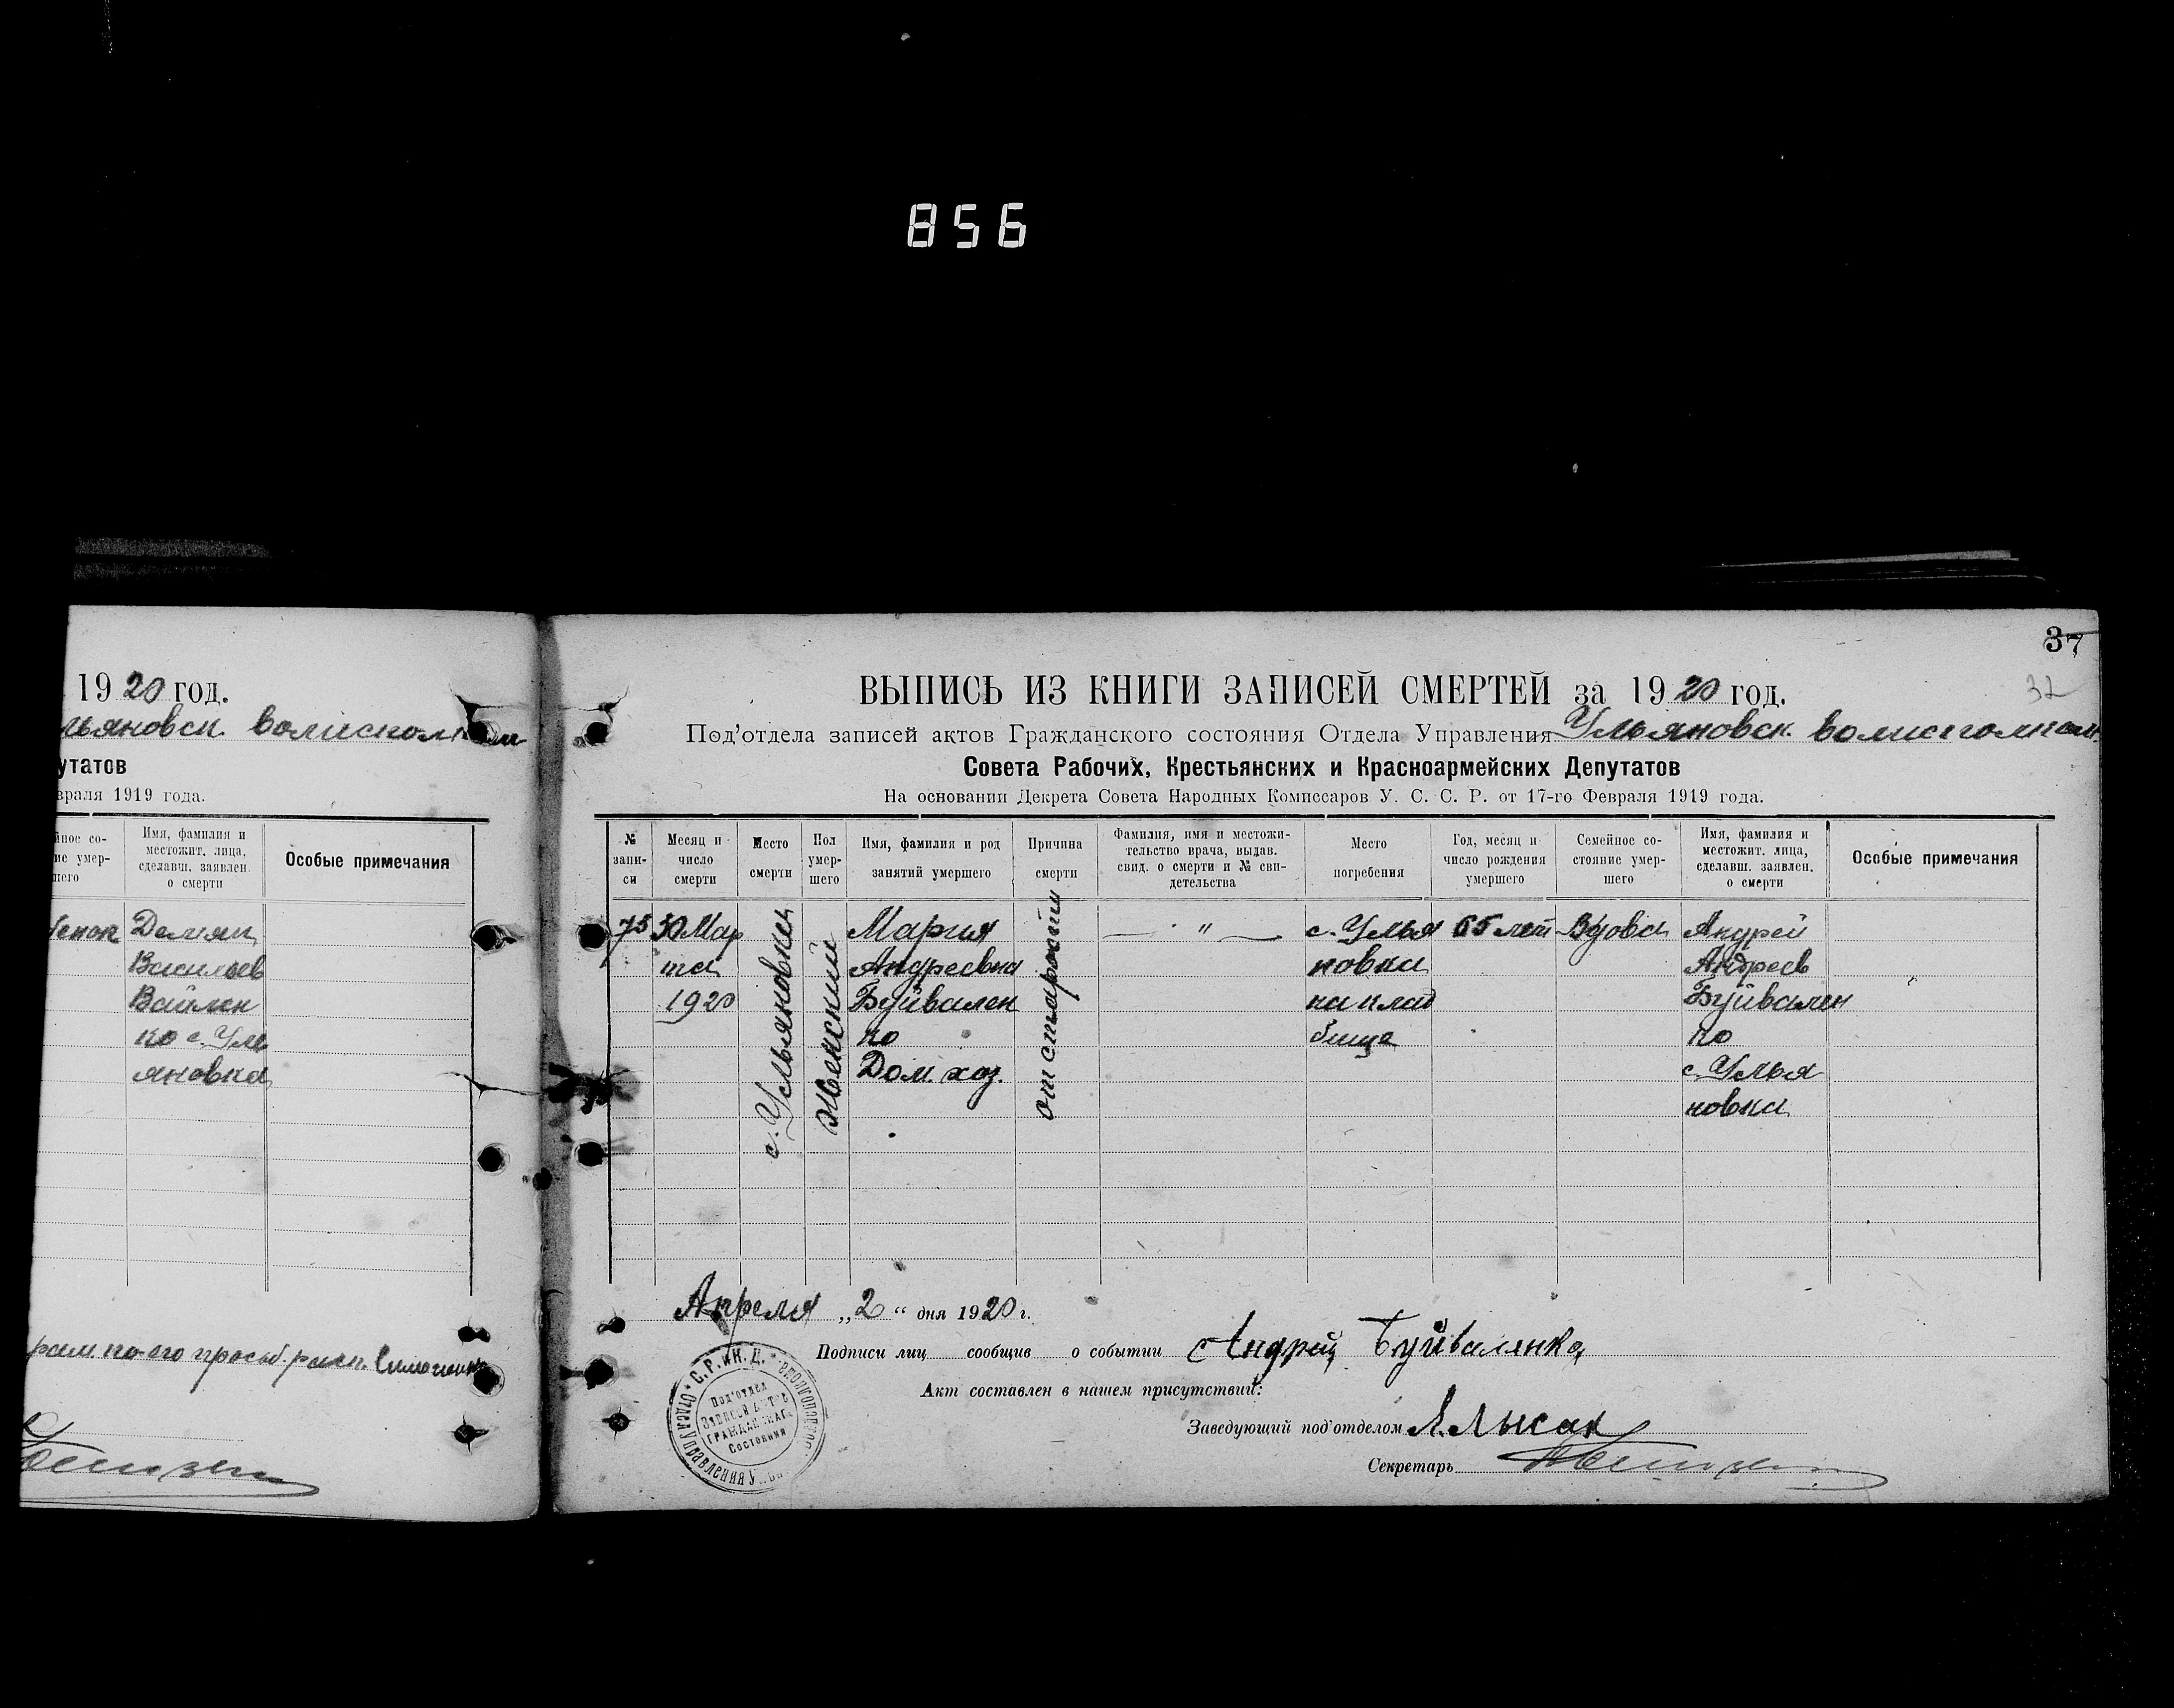 856
19 20 год.
льяновск. волисполком
утатов
враля 1919 года.
Имя, фамилия и
местожит. лица,
сделавш. заявлен.
о смерти
Особые примечания
Демян
Васильев
Вайлен
ко с. Уль
яновка
37
32
ВЫПИСЬ ИЗ КНИГИ ЗАПИСЕЙ СМЕРТЕЙ за 19 20 год.
Под'отдела записей актов Гражданского состояния Отдела Управления Ульяновск. волисполком.
Совета Рабочих, Крестьянских и Красноармейских Депутатов
На основании Декрета Совета Народных Комиссаров У. С. С. Р. от 17-го Февраля 1919 года.
№
запи-
си
Месяц и
число
смерти
Место
смерти
Пол
умер-
шего
Имя, фамилия и род
занятий умершего
Причина
смерти
Фамилия, имя и местожи-
тельство врача, выдав.
свид. о смерти и № сви-
детельства
Место
погребения
Год, месяц и
число рождения
умершего
Семейное со-
стояние умер-
шего
Имя, фамилия и
местожит. лица,
сделавш. заявлен.
о смерти
Особые примечания
75
30 Мар
та
1920
с. Ульяновка
Женский
Мария
Андреевна
Буйвален
ко
Дом. хоз.
от старости
— " —
с. Улья
новка
на клад
бище
65 лет
Вдова
Андрей
Андреев
Буйвален
ко
с. Улья
новка
Апреля „2“ дня 1920 г.
Подписи лиц сообщив о событии Андрей Буйваленко
Акт составлен в нашем присутствии:
Заведующий под'отделом Лысак
Секретарь
Под'отдел
Записей Актов
Гражданскаго
Состояния